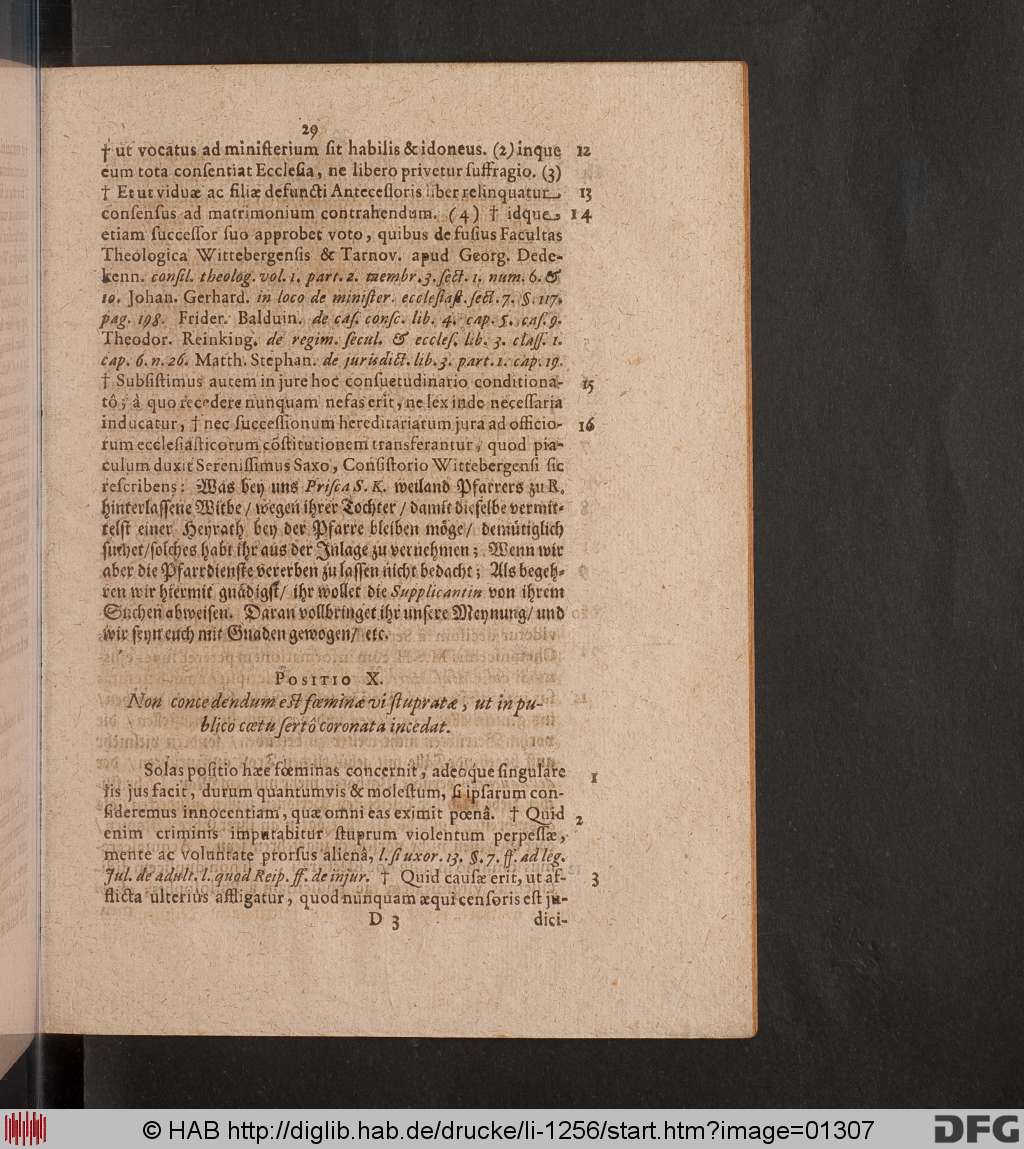 29
† ut vocatus ad ministerium sit habilis & idoneus. (2) inque 12
eum tota consentiat Ecclesia, ne libero privetur suffragio. (3)
† Et ut viduæ ac filiæ defuncti Antecessoris liber relinquatur 13
consensus ad matrimonium contrahendum. (4) † idque 14
etiam successor suo approbet voto, quibus de fusius Facultas
Theologica Wittebergensis & Tarnov. apud Georg. Dede-
kenn. consil. theolog. vol. 1. part. 2. membr. 3. sect. 1. num. 6. &
10. Johan. Gerhard. in loco de minister. ecclesiast. sect. 7. §. 117.
pag. 198. Frider. Balduin. de cas. consc. lib. 4. cap. 5. cas. 9.
Theodor. Reinking. de regim. secul. & eccles. lib. 3. class. 1.
cap. 6. n. 26. Matth. Stephan. de jurisdict. lib. 3. part. 1. cap. 19.
† Subsistimus autem in jure hoc consuetudinario conditiona- 15
tô, à quo recedere nunquam nefas erit, ne lex inde necessaria
inducatur, † nec successionum hereditariatum jura ad officio- 16
rum ecclesiasticorum cõstitutionem transferantur, quod pia-
culum duxit Serenissimus Saxo, Consistorio Wittebergensi sic
rescribens: Was bey uns Prisca S. K. weiland Pfarrers zu R.
hinterlassene Witbe / wegen ihrer Tochter / damit dieselbe vermit-
telst einer Heyrath bey der Pfarre bleiben möge / demütiglich
suchet / solches habt ihr aus der Inlage zu vernehmen; Wenn wir
aber die Pfarrdienste vererben zu lassen nicht bedacht; Als begeh-
ren wir hiermit gnädigst / ihr wollet die Supplicantin von ihrem
Suchen abweisen. Daran vollbringet ihr unsere Meynung / und
wir seyn euch mit Gnaden gewogen / etc.
POSITIO X.
Non concedendum est fœminæ vi stupratæ, ut in pu-
blico cœtu sertô coronata incedat.
Solas positio hæc fœminas concernit, adeoque singulare 1
iis jus facit, durum quantumvis & molestum, si ipsarum con-
sideremus innocentiam, quæ omni eas eximit pœnâ. † Quid 2
enim criminis imputabitur stuprum violentum perpessæ,
mente ac voluntate prorsus alienâ, l. si uxor. 13. §. 7. ff. ad leg.
Jul. de adult. l. quod Reip. ff. de injur. † Quid causæ erit, ut af- 3
flicta ulteriùs affligatur, quod nunquam æqui censoris est ju-
D 3 dici-
© HAB http://diglib.hab.de/drucke/li-1256/start.htm?image=01307
DFG